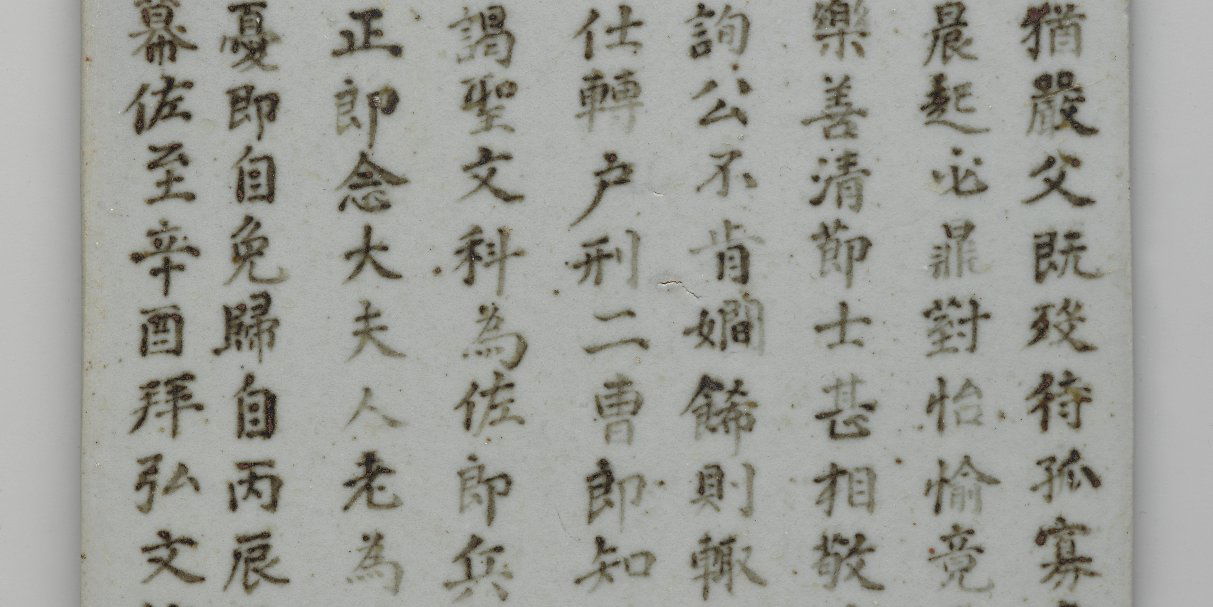 猶嚴父既歿待孤寡
晨起必鼎對怡愉竟
樂善清節士甚相敬
詢公不肯嫺餙則輙
仕轉户刑二曹郎知
謁聖文科為佐郎兵
正郎念大夫人老為
憂即自免歸自丙辰
幕佐至辛酉拜弘文